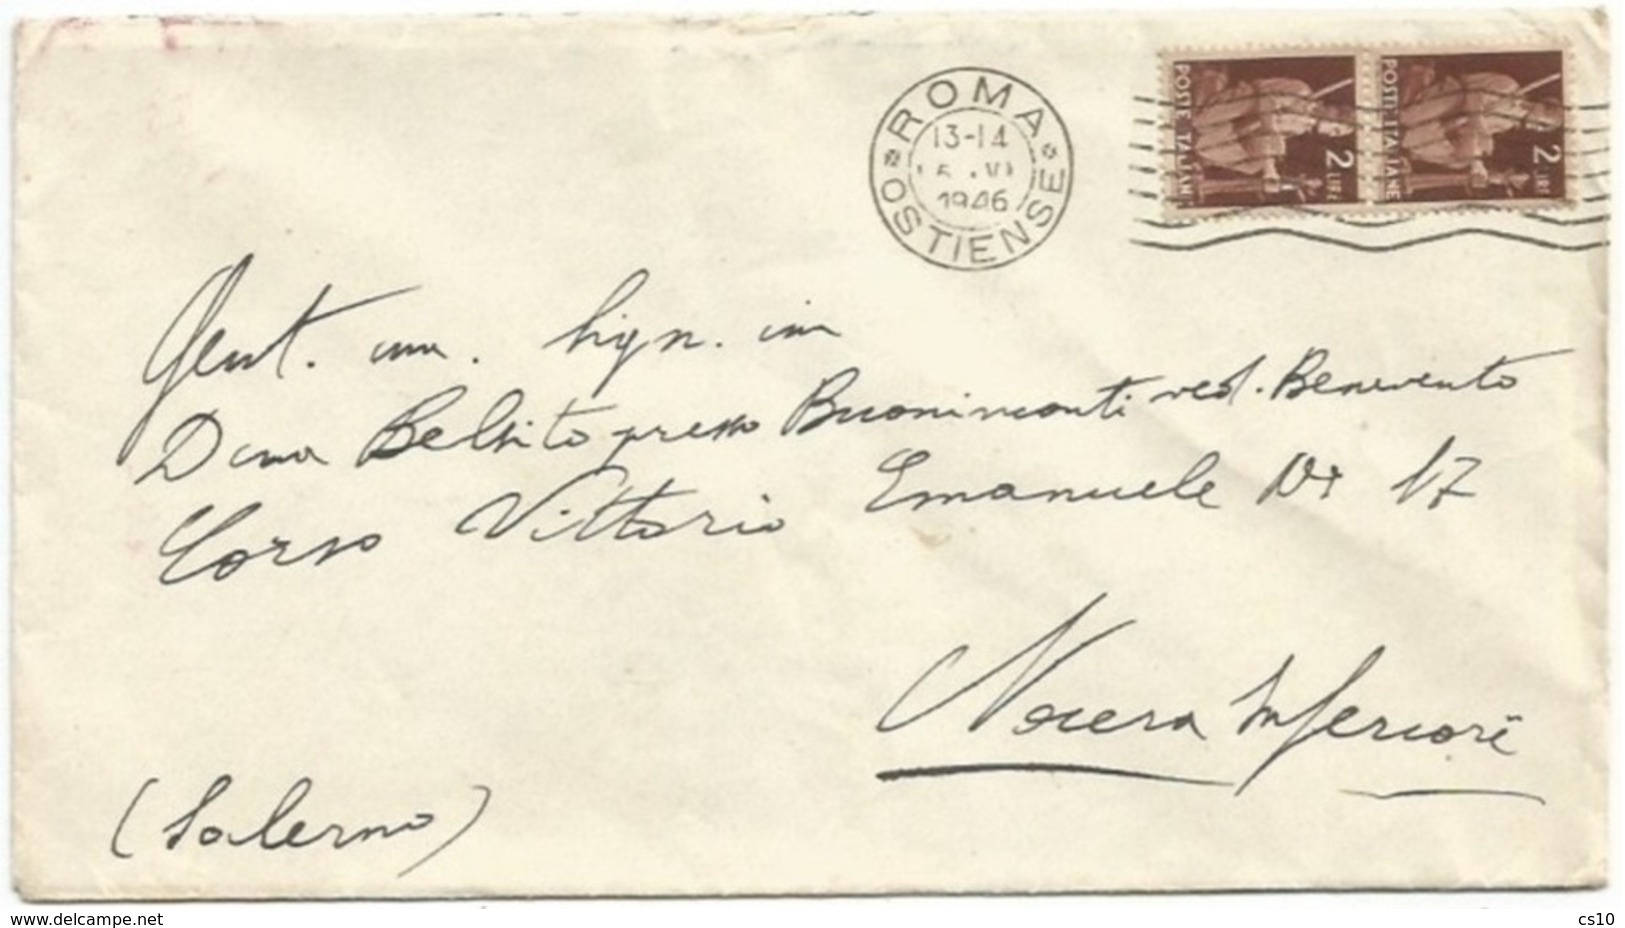 ROMA
13-14
1946
OSTIENSE
POSTE ITALIANE
2 LIRE
POSTE ITALIANE
2 LIRE
Gent. ma. Sign. ina
Dina Belsito presso Buoninconti ved. Benevento
Corso Vittorio Emanuele N. 17
Nocera Inferiore
(Salerno)
www.delcampe.net
cs10